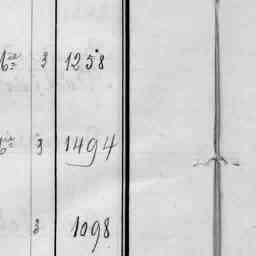 6ª 3 1258
6ª 3 1494
3 1098